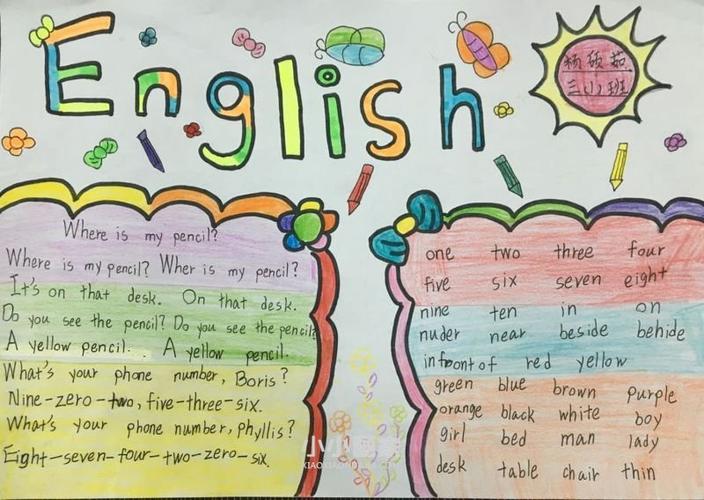 English
杨硕茹
三(1)班
Where is my pencil?
Where is my pencil? Wher is my pencil?
It's on that desk. On that desk.
Do you see the pencil? Do you see the pencil?
A yellow pencil. A yellow pencil.
What's your phone number, Boris?
Nine-zero-two, five-three-six.
What's your phone number, phyllis?
Eight-seven-four-two-zero-six.
one two three four
five six seven eight
nine ten in on
nuder near beside behide
infrontof red yellow
green blue brown purple
orange black white boy
girl bed man lady
desk table chair thin